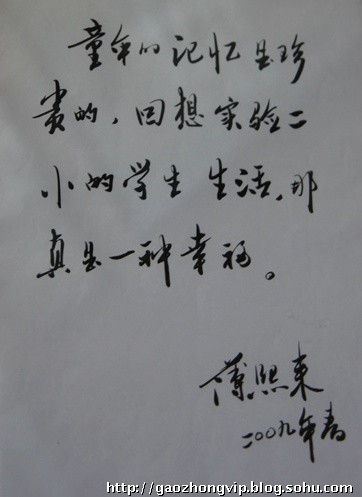 童年的记忆是珍
贵的，回想实验二
小的学生生活，那
真是一种幸福。
薄熙来
二〇〇九年春
http://gaozhongvip.blog.sohu.com